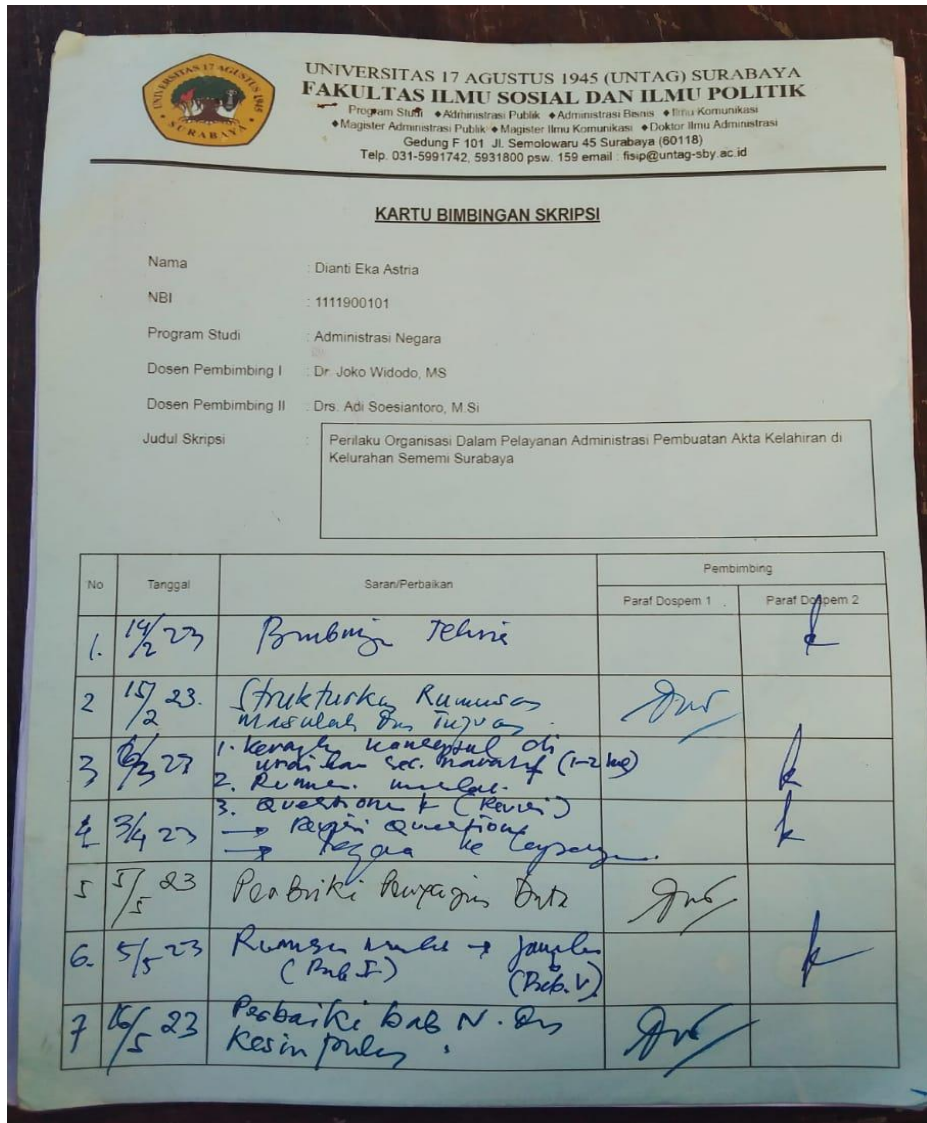 UNIVERSITAS 17 AGUSTUS 1945
SURABAYA
UNIVERSITAS 17 AGUSTUS 1945 (UNTAG) SURABAYA
FAKULTAS ILMU SOSIAL DAN ILMU POLITIK
Program Studi ◆Administrasi Publik ◆Administrasi Bisnis ◆Ilmu Komunikasi
◆Magister Administrasi Publik ◆Magister Ilmu Komunikasi ◆Doktor Ilmu Administrasi
Gedung F 101 Jl. Semolowaru 45 Surabaya (60118)
Telp. 031-5991742, 5931800 psw. 159 email : fisip@untag-sby.ac.id
KARTU BIMBINGAN SKRIPSI
Nama : Dianti Eka Astria
NBI : 1111900101
Program Studi : Administrasi Negara
Dosen Pembimbing I : Dr. Joko Widodo, MS
Dosen Pembimbing II : Drs. Adi Soesiantoro, M.Si
Judul Skripsi : Perilaku Organisasi Dalam Pelayanan Administrasi Pembuatan Akta Kelahiran di
Kelurahan Sememi Surabaya
No Tanggal Saran/Perbaikan Pembimbing
Paraf Dospem 1 Paraf Dospem 2
1. 14/2 23
2 15/2 23. Strukturkan Rumusan
Masalah Dan Tujuan.
3 23 1. konseptual di
(1-2
2.
3. (Revisi)
4 3/4 23 → 
→ ke
5 5/5 23 Perbaiki Data
6. 5/5 23 Rumusan →
(Bab I) (Bab. V)
7 16/5 23 Perbaiki bab IV. Dan
Kesimpulan.